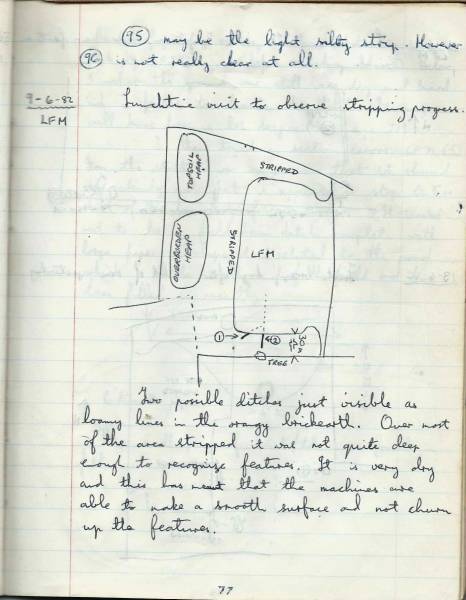 (95) may be the light silty strip. However
(96) is not really clear at all.
9-6-82
LFM
Lunchtime visit to observe stripping progress.
TOPSOIL HEAP
STRIPPED
OVERBURDEN HEAP
STRIPPED
LFM
①
②
TREE
Two possible ditches just visible as
loamy lines in the orangy brickearth. Over most
of the area stripped it was not quite deep
enough to recognise features. It is very dry
and this has meant that the machines are
able to make a smooth surface and not churn
up the features.
77